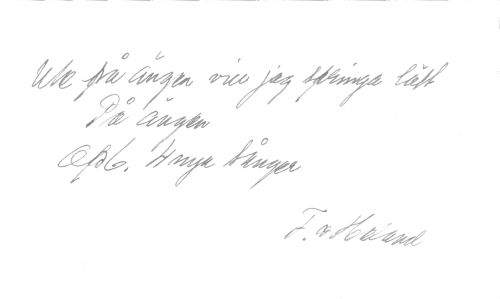 Ute på ängen vill jag springa lätt
På ängen
Op 6. 4 nya sånger
F. v Håland